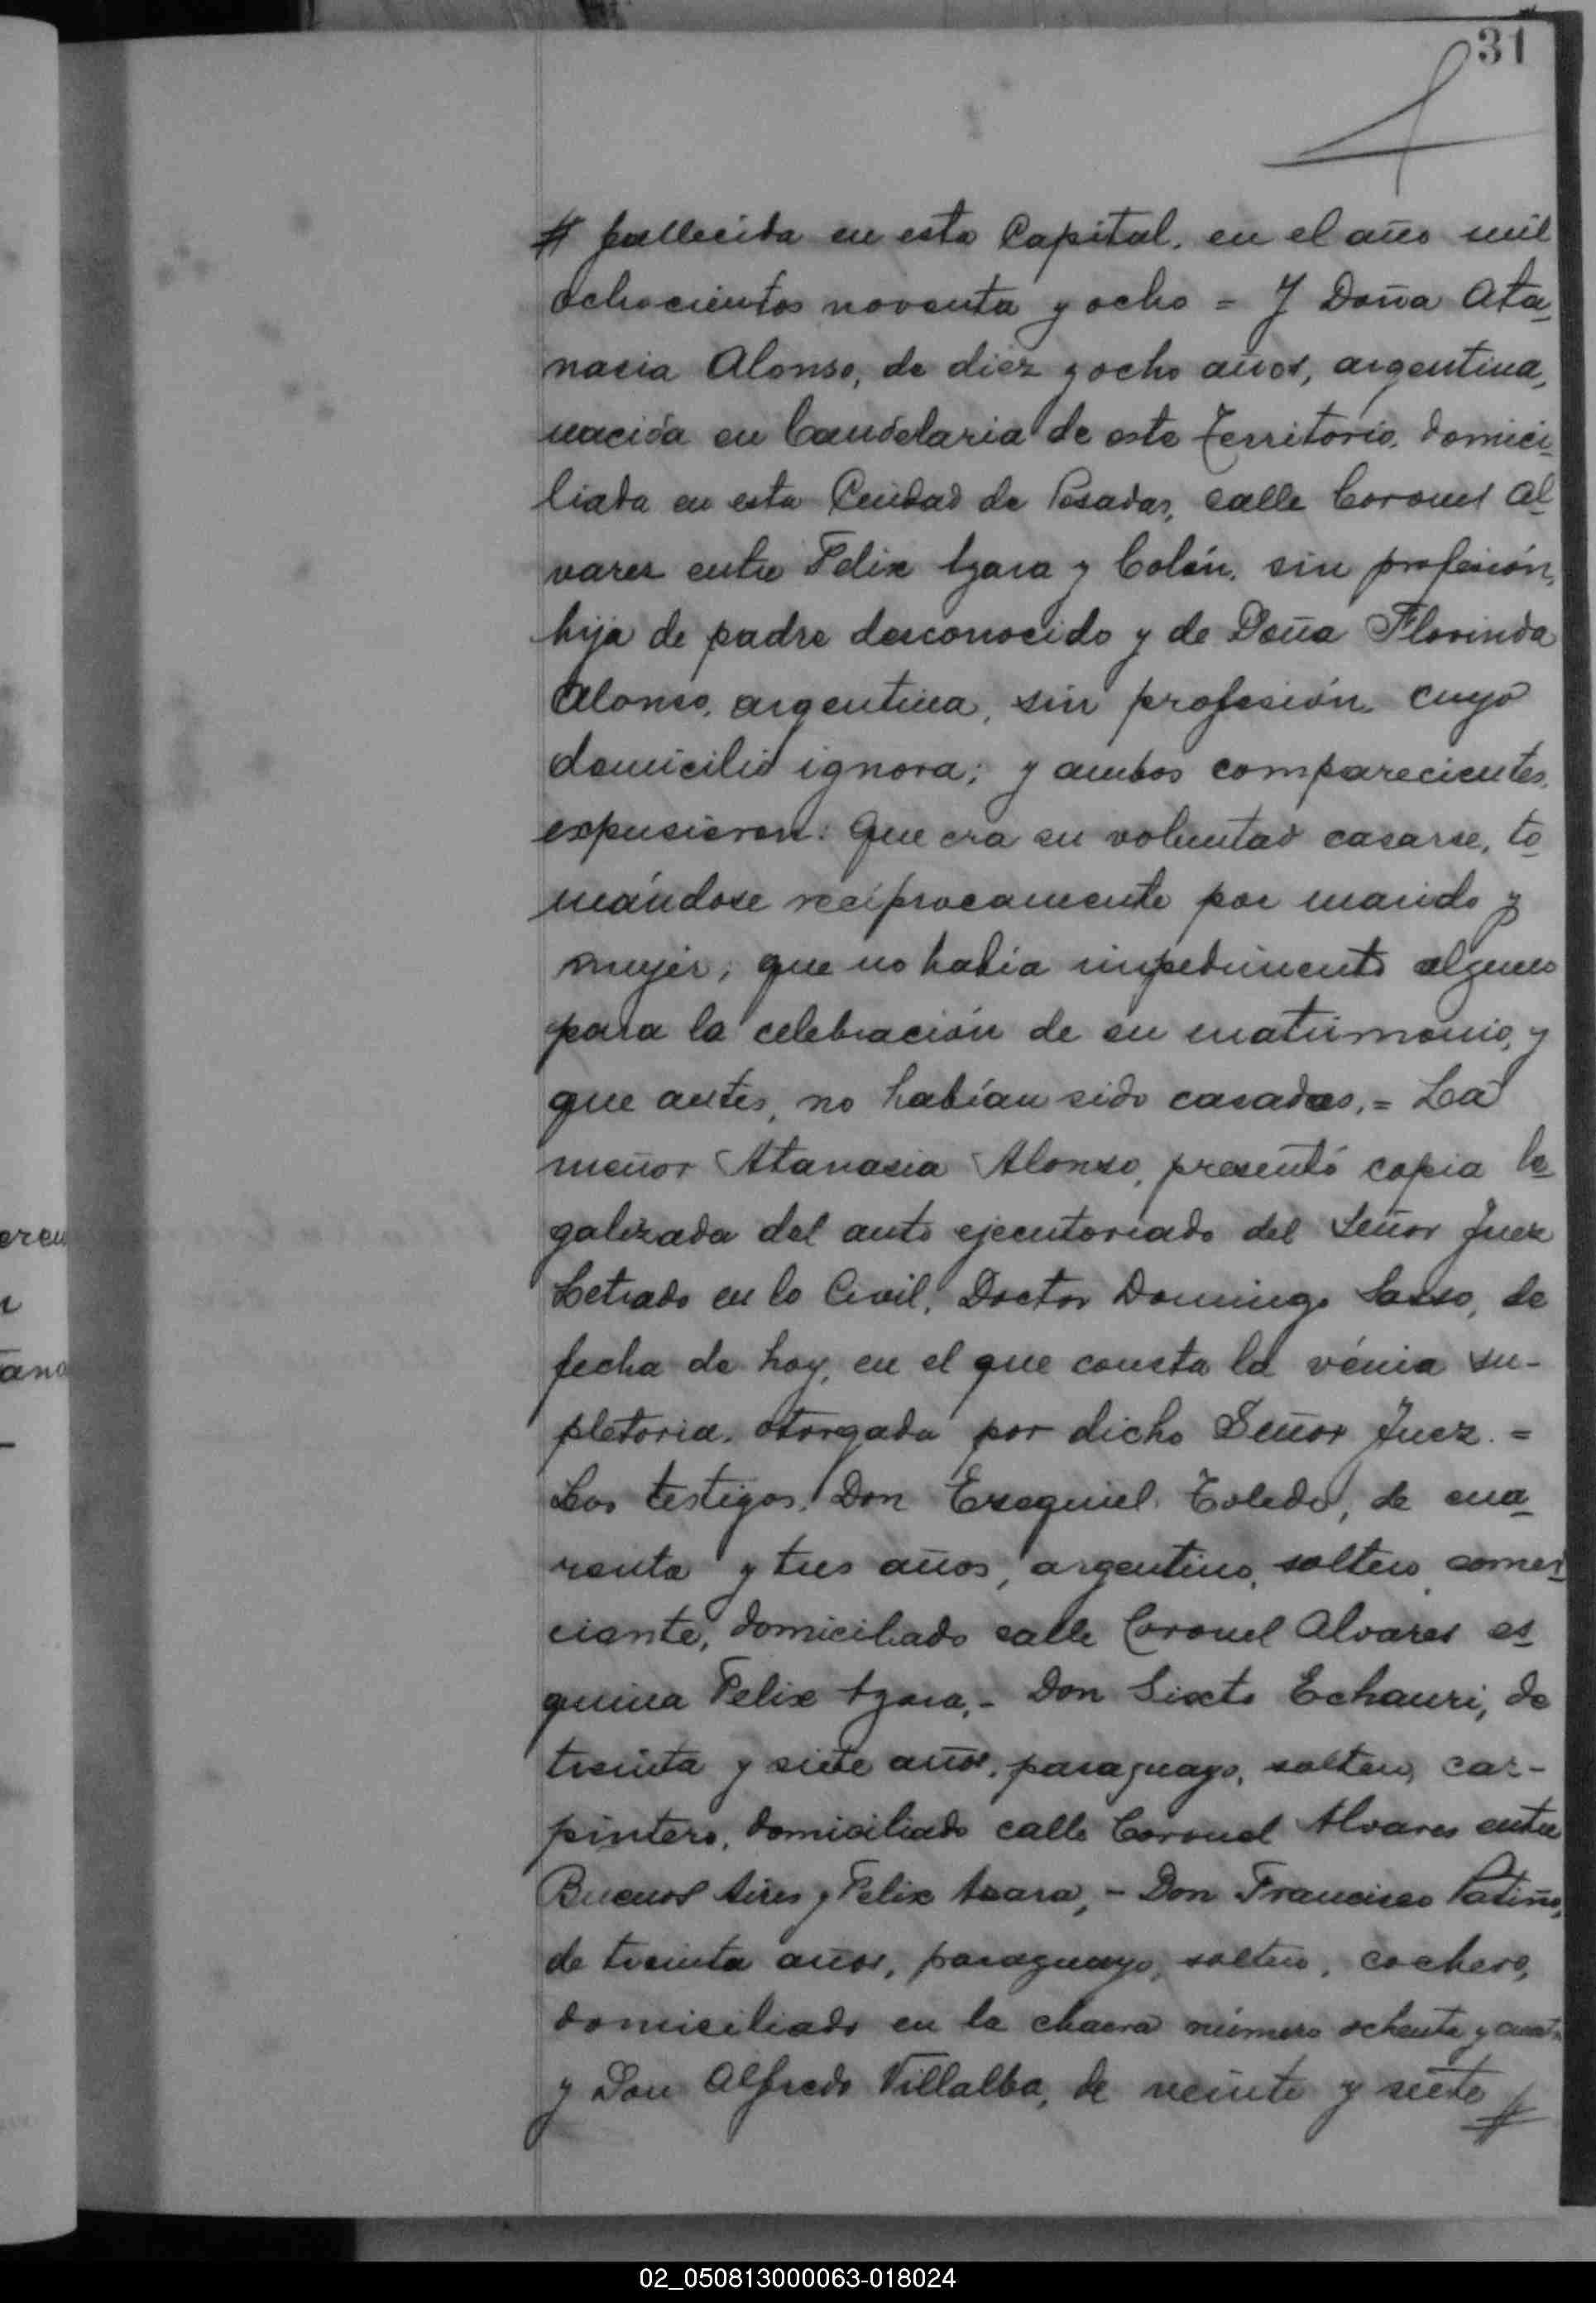 31
# fallecida en esta Capital, en el año mil
ochocientos noventa y ocho = Y Doña Ata_
nacia Alonso, de diez y ocho años, argentina,
nacida en Candelaria de este Territorio, domici_
liada en esta Ciudad de Posadas, calle Coronel Al_
varez entre Felix Azara y Colón, sin profesión,
hija de padre desconocido y de Doña Florinda
Alonso, argentina, sin profesión, cuyo
domicilio ignora; y ambos comparecientes,
expusieron: Que era su voluntad casarse, to_
mándose recíprocamente por marido y
mujer; que no había impedimento alguno
para la celebración de su matrimonio, y
que antes, no habían sido casados. = La
menor Atanasia Alonso, presentó copia le_
galizada del auto ejecutoriado del Señor Juez
Letrado en lo Civil, Doctor Domingo Sasso, de
fecha de hoy, en el que consta la vénia su-
pletoria, otorgada por dicho Señor Juez. =
Los testigos, Don Ezequiel Toledo, de cua_
renta y tres años, argentino, soltero, comer_
ciante, domiciliado calle Coronel Alvares es_
quina Felix Azara, - Don Sixto Echauri, de
treinta y siete años, paraguayo, soltero, car-
pintero, domiciliado calle Coronel Alvares entre
Buenos Aires y Felix Azara, - Don Francisco Patiño,
de treinta años, paraguayo, soltero, cochero,
domiciliado en la chacra número ochenta y cuatro
y Don Alfredo Villalba, de veinte y siete #
eren
ana
02_050813000063-018024